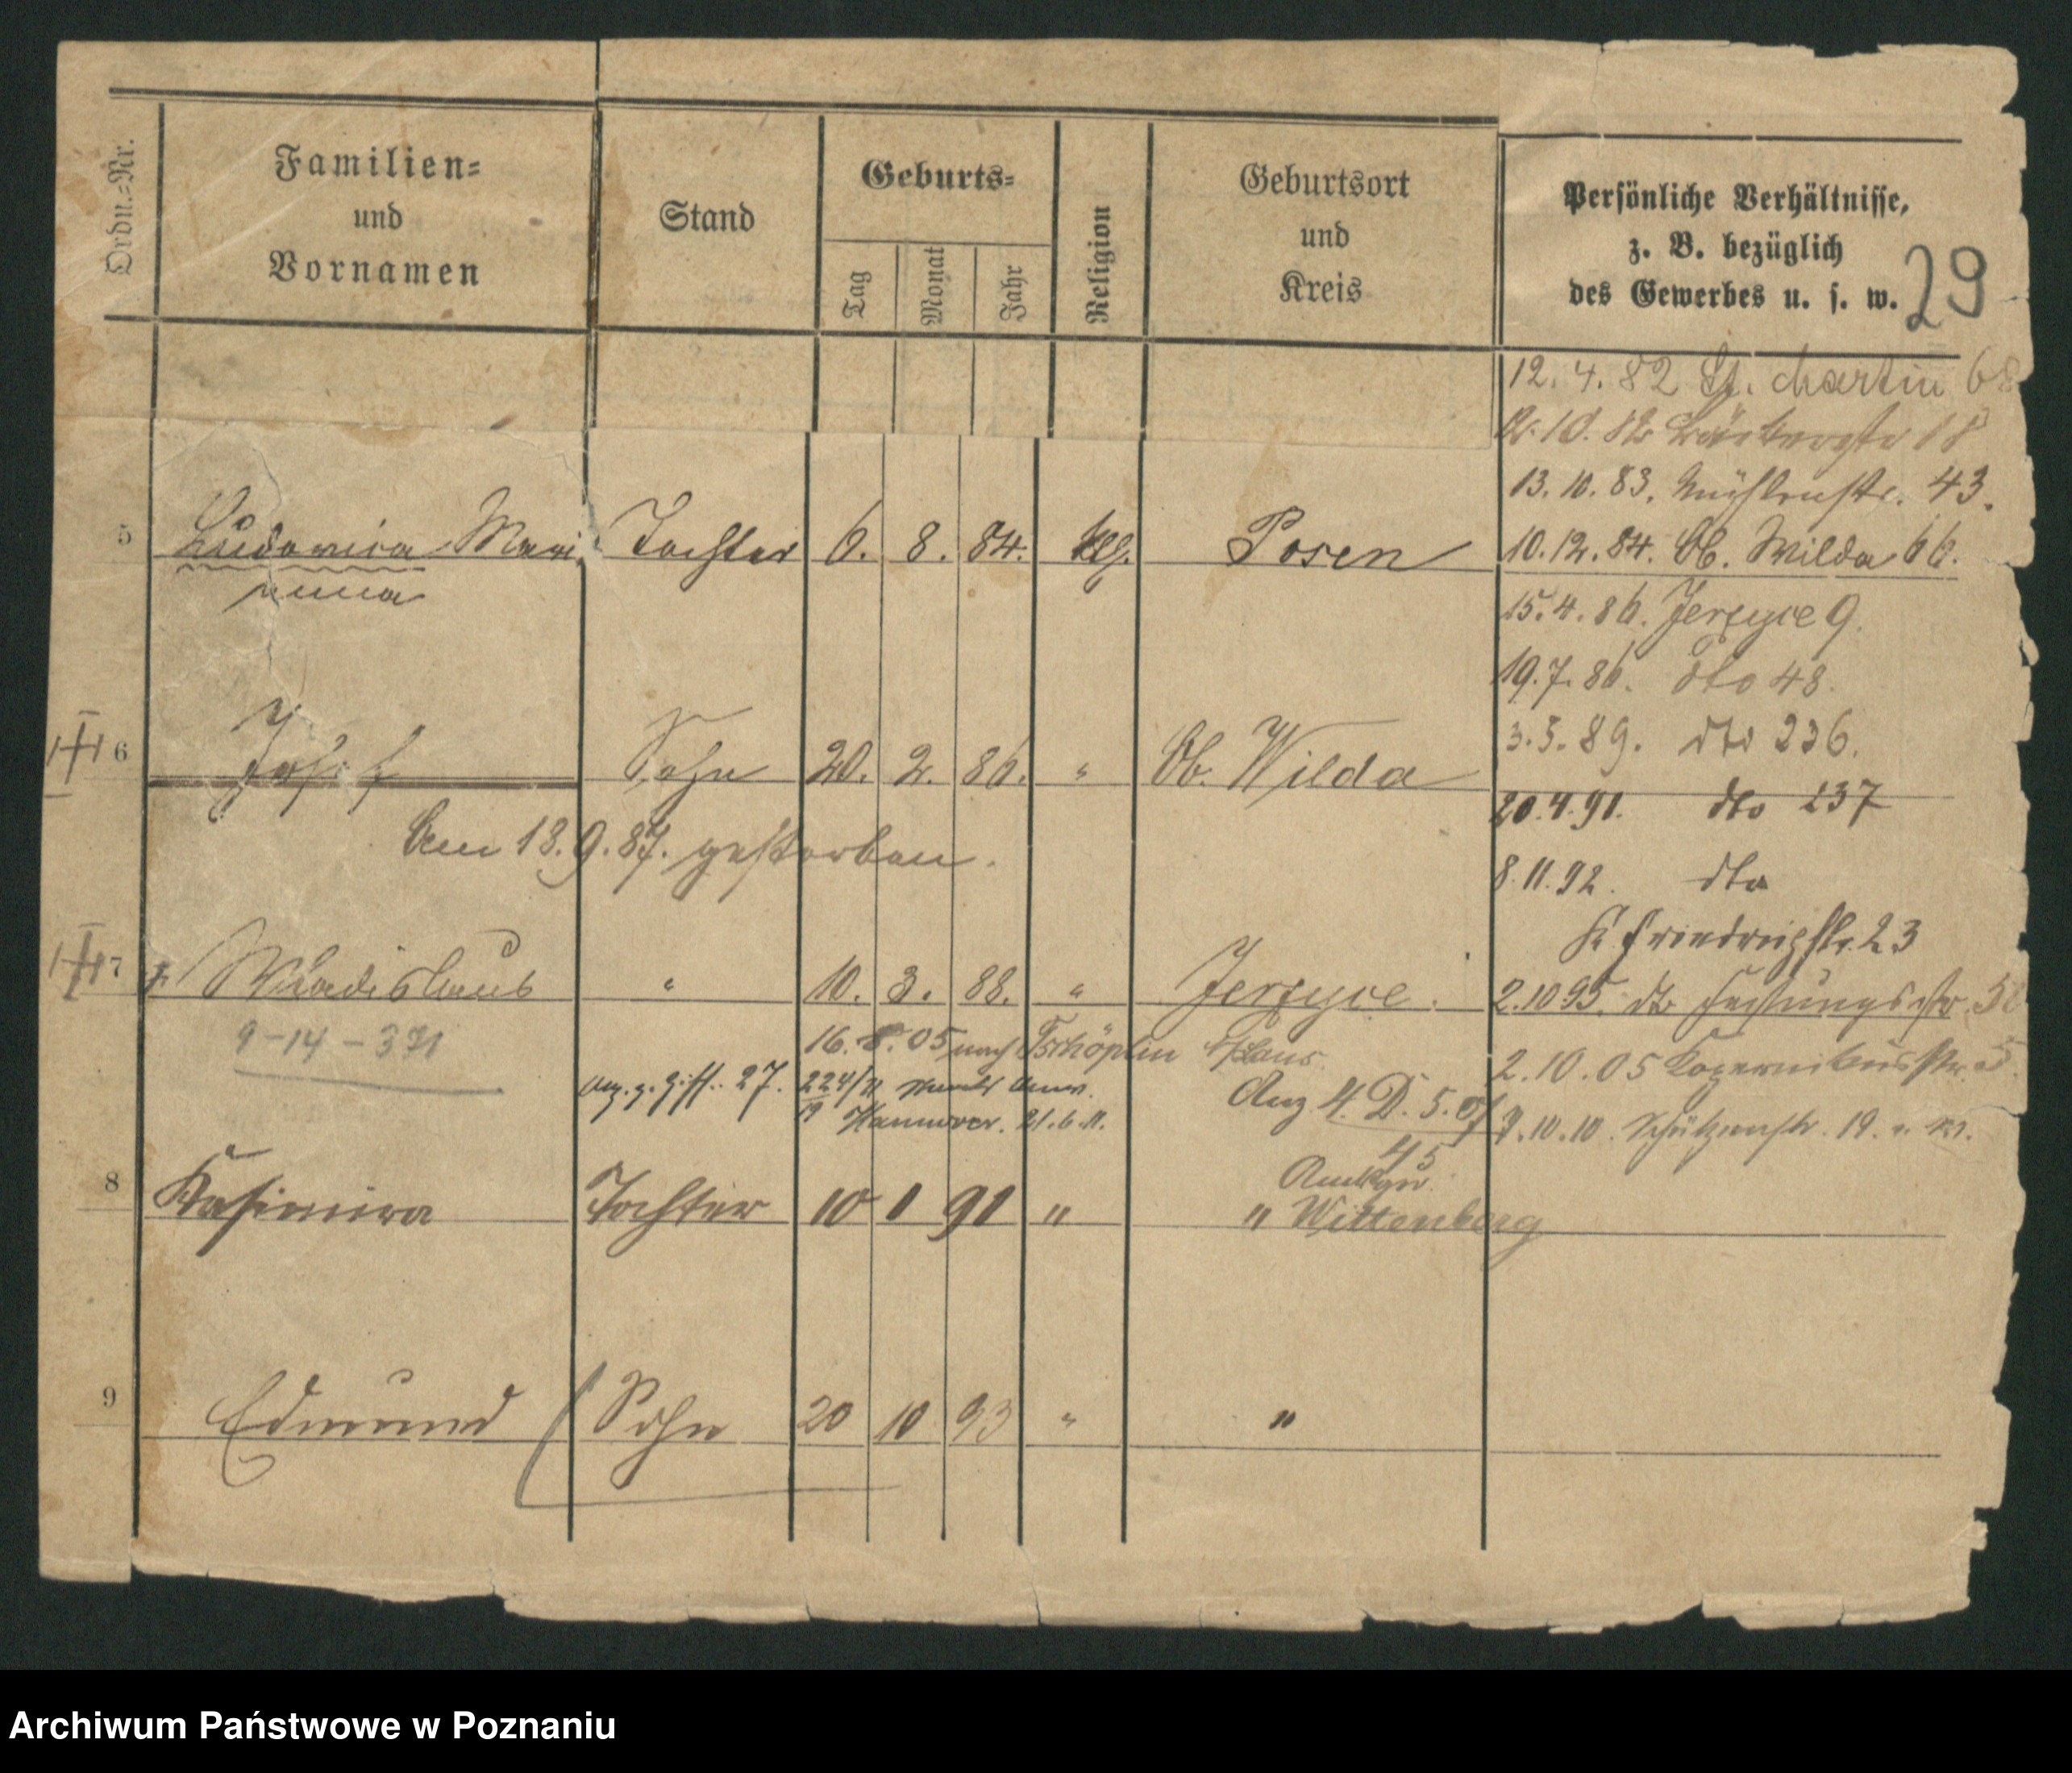 Ordn.-Nr.
Familien-
und
Vornamen
Stand
Geburts-
Tag
Monat
Jahr
Religion
Geburtsort
und
Kreis
Persönliche Verhältnisse,
z. B. bezüglich
des Gewerbes u. s. w.
29
12. 4. 82 St. Martin 68
18
13. 10. 83. Mühlenstr. 43.
5 Ludovica Mari Tochter 6. 8. 84. Posen
10. 12. 84. Ob. Wilda 66.
anna
15. 4. 86. Jerzyce 9.
19. 7. 86. dto 48.
3. 3. 89. dto 236.
6 Josef Sohn 20. 2. 86. " Ob. Wilda
20. 4. 91. dto 237
Am 18. 9. 87. gestorben.
8. 11. 92. dto
K. Friedrichstr. 23
7 Wladislaus " 10. 3. 88. " Jerzyce.
2. 10 95. dto
9-14-371
16. 8. 05 nach Tschöpeln
2. 10. 05 Kopernikusstr. 5.
27. 224/11
19 Hannover. 21. 6. 11.
Anz 4. D. 5.
45
10. 10. Schützenstr. 19.
8 Kasimira Tochter 10 1 91 " "
Wittenberg
9 Edmund Sohn 20 10 93 " "
Archiwum Państwowe w Poznaniu